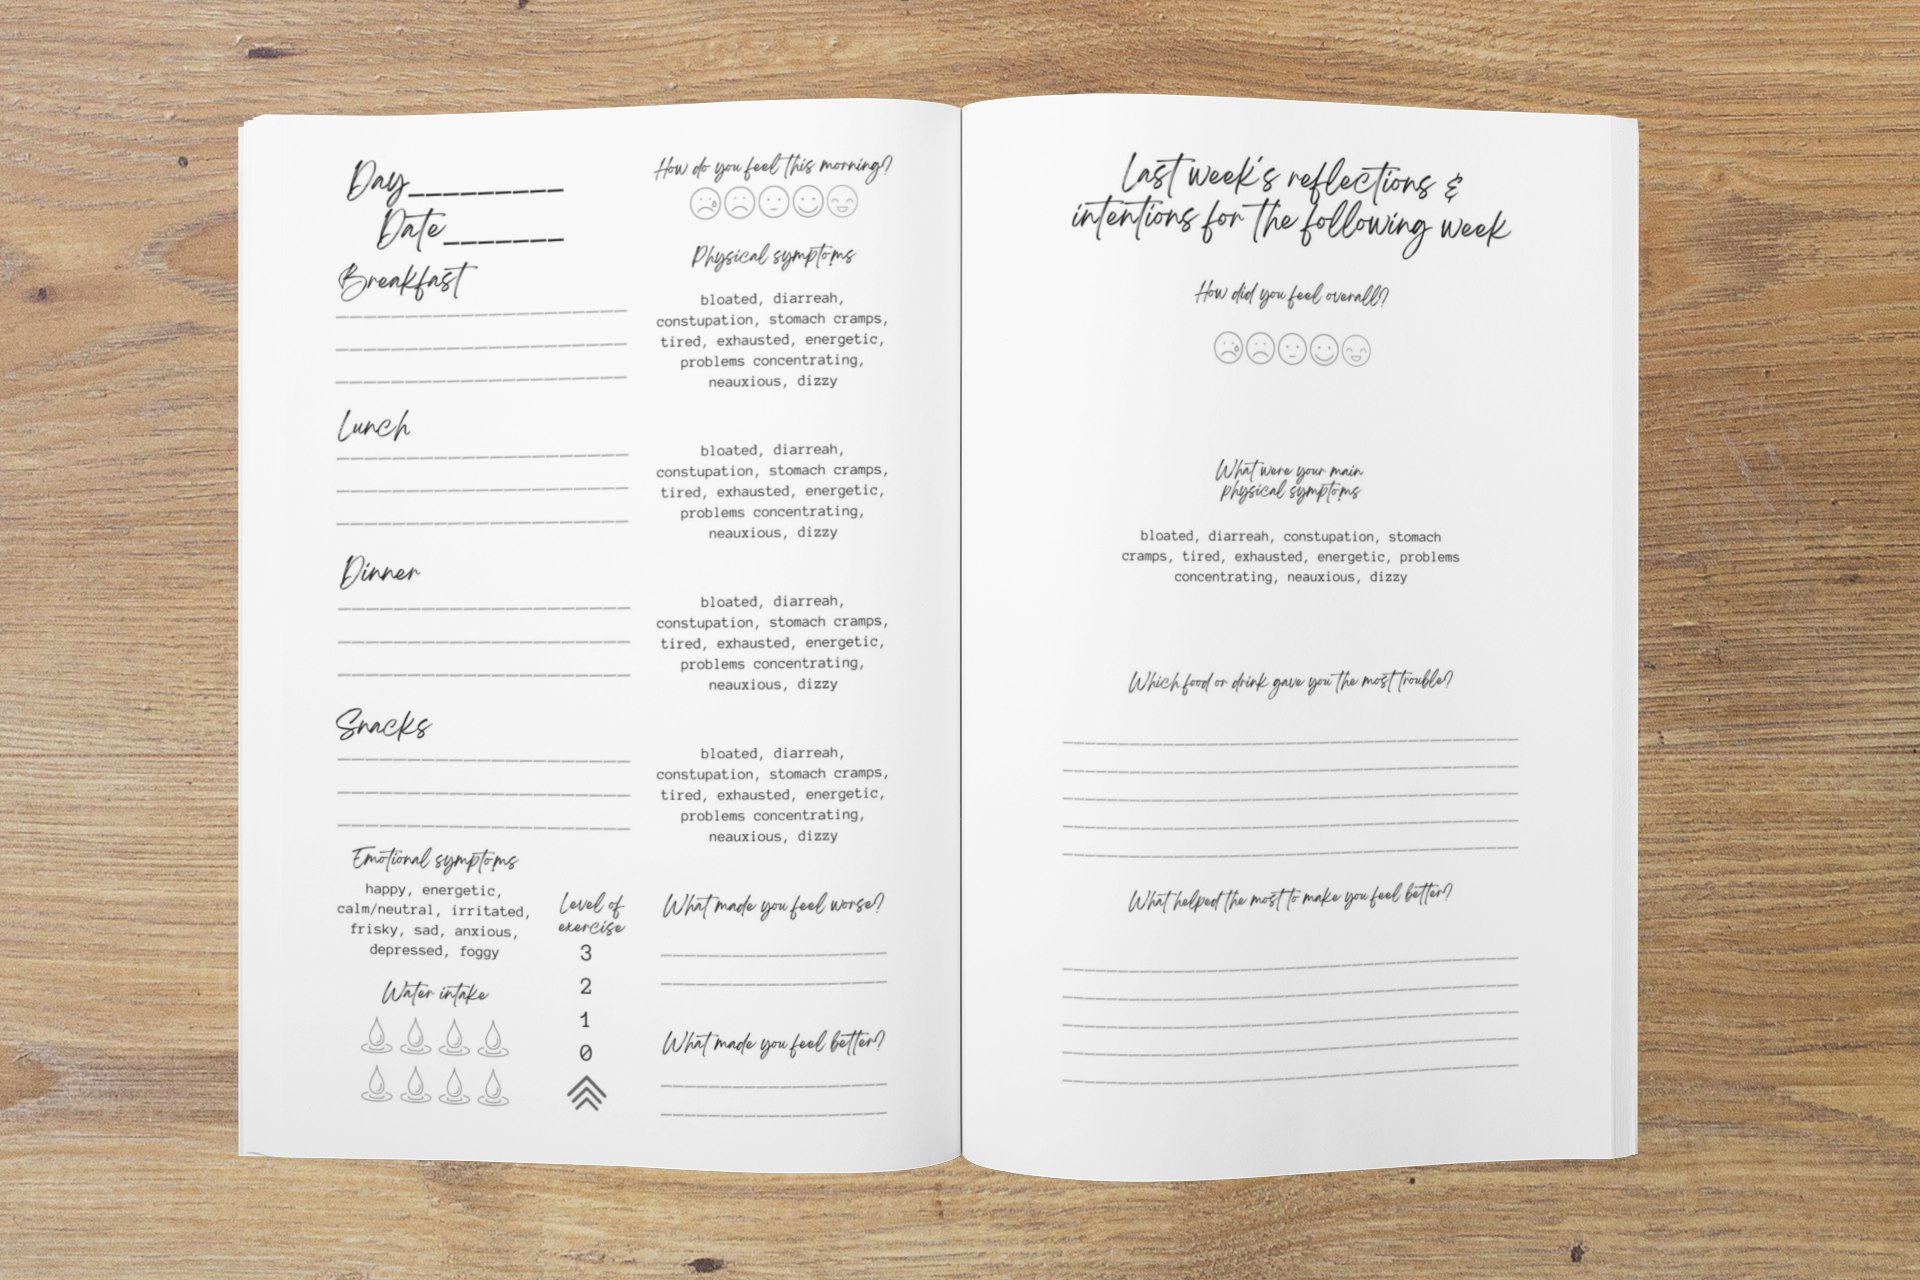 Day_________
Date_______
Breakfast
Lunch
Dinner
Snacks
Emotional symptoms
happy, energetic,
calm/neutral, irritated,
frisky, sad, anxious,
depressed, foggy
Water intake
Level of
exercise
3
2
1
0
How do you feel this morning?
Physical symptoms
bloated, diarreah,
constupation, stomach cramps,
tired, exhausted, energetic,
problems concentrating,
neauxious, dizzy
bloated, diarreah,
constupation, stomach cramps,
tired, exhausted, energetic,
problems concentrating,
neauxious, dizzy
bloated, diarreah,
constupation, stomach cramps,
tired, exhausted, energetic,
problems concentrating,
neauxious, dizzy
bloated, diarreah,
constupation, stomach cramps,
tired, exhausted, energetic,
problems concentrating,
neauxious, dizzy
What made you feel worse?
What made you feel better?
Last week's reflections &
intentions for the following week
How did you feel overall?
What were your main
physical symptoms
bloated, diarreah, constupation, stomach
cramps, tired, exhausted, energetic, problems
concentrating, neauxious, dizzy
Which food or drink gave you the most trouble?
What helped the most to make you feel better?